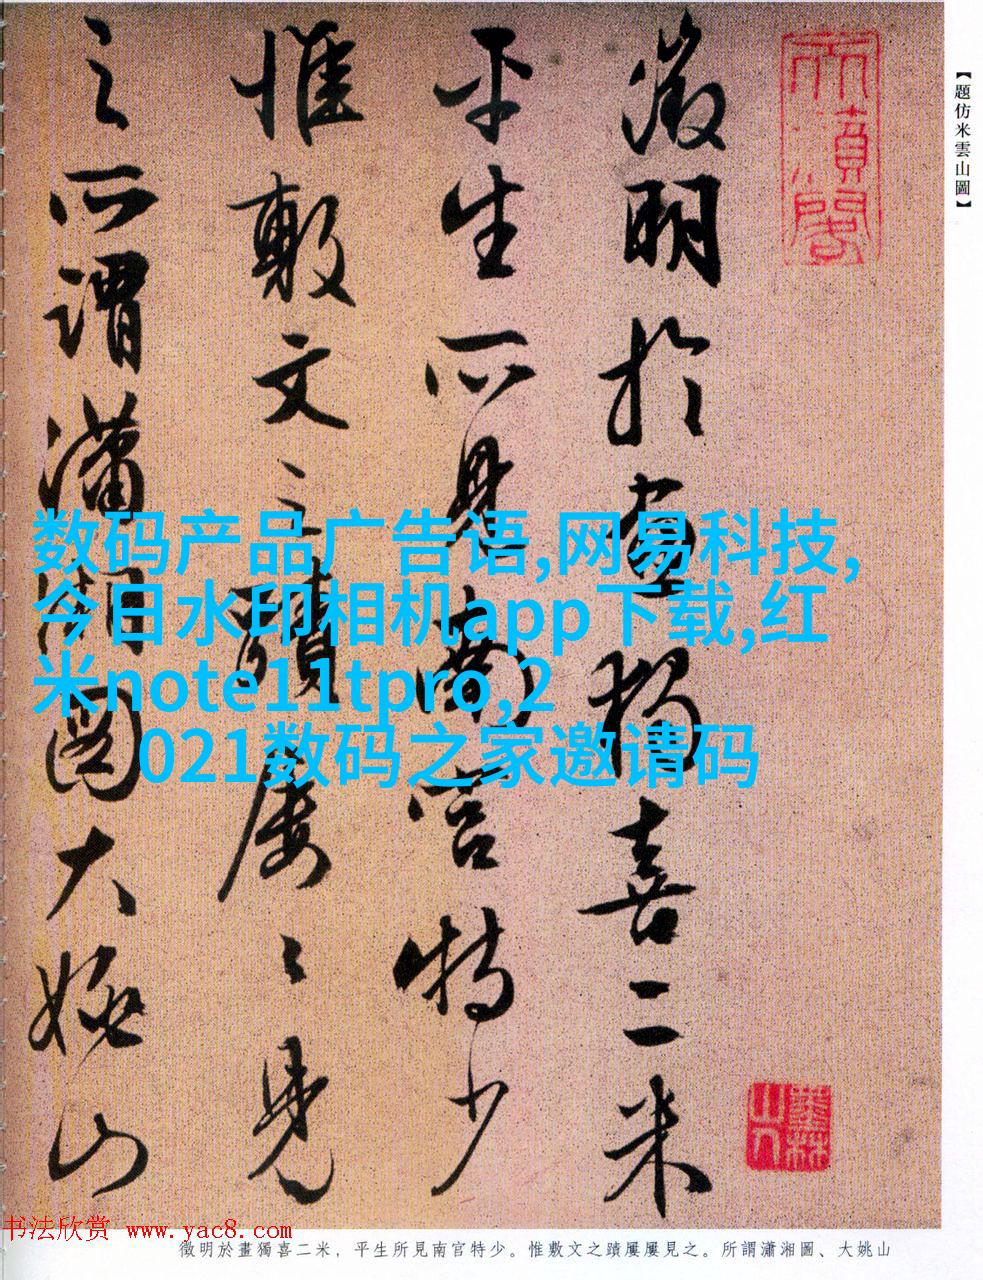 【題仿米雲山圖】
徵明於畫獨喜二米
平生所見南宮特少
惟敷文之蹟屢〻見
之所謂瀟湘圖大姚山
数码产品广告语,网易科技,
今日水印相机app下载,红
米note11tpro,2
021数码之家邀请码
墨林山人
书法欣赏 www.yac8.com
徵明於畫獨喜二米，平生所見南官特少。惟敷文之蹟屢屢見之。所謂瀟湘圖、大姚山